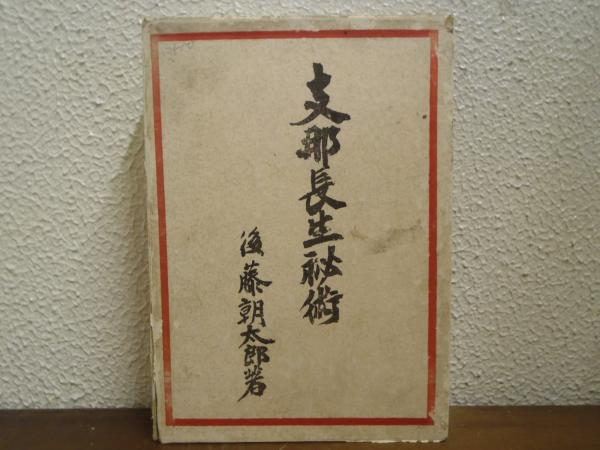 支那長生祕術
後藤朝太郎著